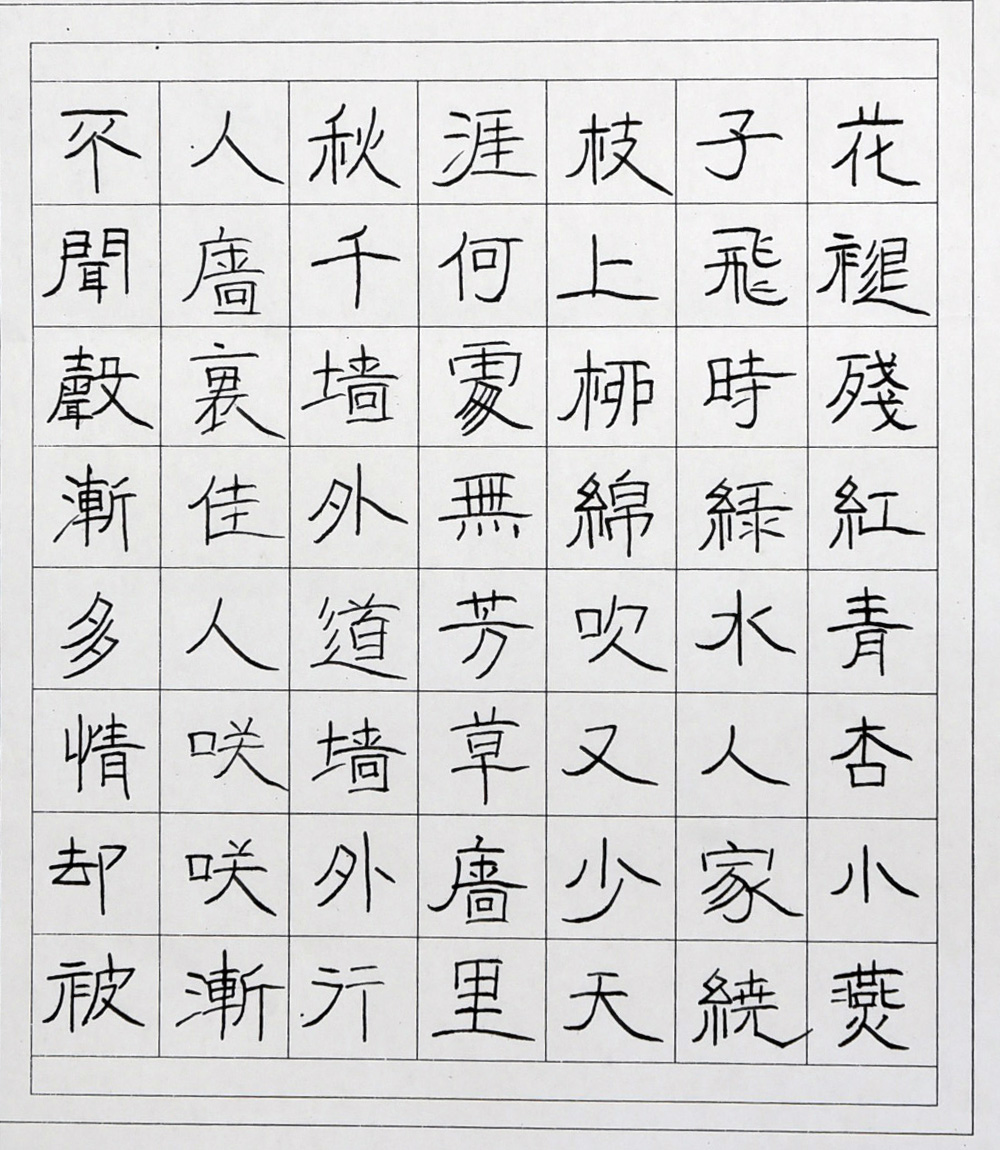 花褪殘紅青杏小燕
子飛時緑水人家繞
枝上柳綿吹又少天
涯何處無芳草廧里
秋千墙外道墙外行
人廧裏佳人咲咲漸
不聞聲漸多情却被